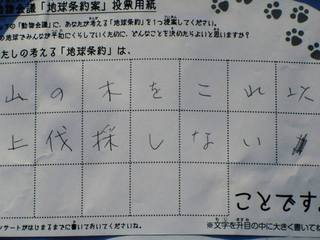 動物会議「地球条約案」投票用紙
の「動物会議」に、あなたが考える「地球条約」を1つ提案してください。
地球でみんなが平和にくらしていくために、どんなことを決めたらよいと思いますか?
たしの考える「地球条約」は、
山の木をこれ以
上伐採しない
ことです
ンケートがはじまるまでに書いておいてくださいね。
※文字を升目の中に大きく書いてね